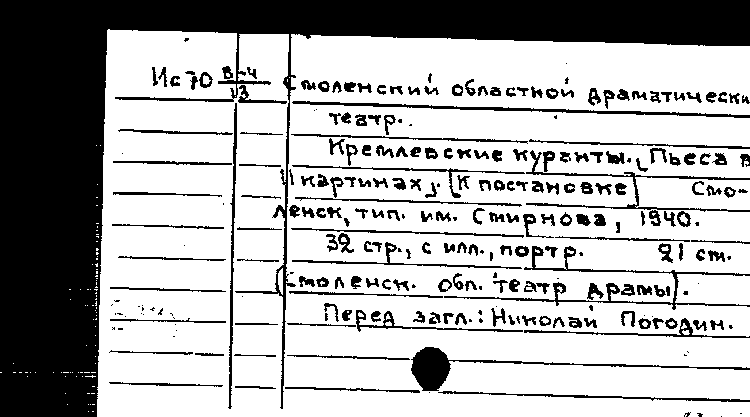 Ис70 В-4/13 Смоленский областной драматически
театр.
Кремлевские куранты. [Пьеса в
11 картинах]. [К постановке] Смо-
ленск, тип. им. Смирнова, 1940.
32 стр., с илл., портр. 21 cm.
(Смоленск. обл. театр драмы).
Перед загл.: Николай Погодин.